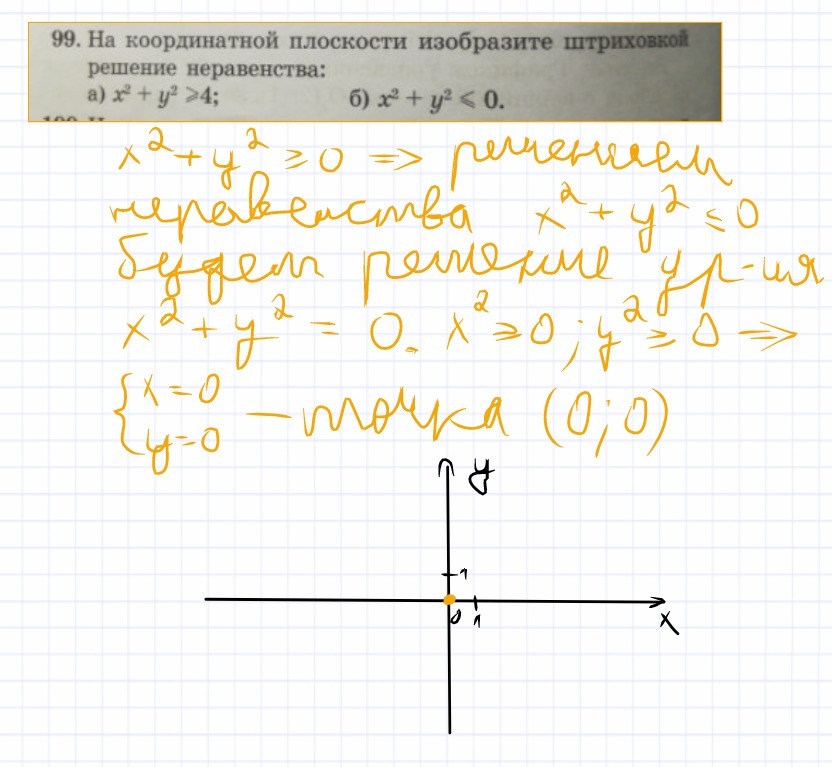 99. На координатной плоскости изобразите штриховкой
решение неравенства:
а) x² + y² ⩾4;	б) x² + y² ⩽ 0.
x² + y² ≥ 0 => решением
неравенства x² + y² ≤ 0
будет решение ур-ия
x² + y² = 0. x² ≥ 0 ; y² ≥ 0 =>
{ x = 0
y = 0 — точка (0; 0)
y
1
0 1
x